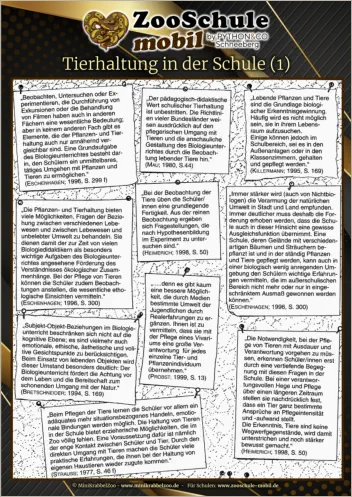 ZooSchule
mobil by PYTHON&CO
Schneeberg
Tierhaltung in der Schule (1)
„Beobachten, Untersuchen oder Ex-
perimentieren, die Durchführung von
Exkursionen oder die Behandlung
von Filmen haben auch in anderen
Fächern eine wesentliche Bedeutung;
aber in keinem anderen Fach gibt es
Elemente, die der Pflanzen- und Tier-
haltung auch nur annähernd ver-
gleichbar sind. Eine Grundaufgabe
des Biologieunterrichtes besteht dar-
in, den Schülern ein unmittelbares,
tätiges Umgehen mit Pflanzen und
Tieren zu ermöglichen.“
(ESCHENHAGEN; 1996, S. 299 f)
„Der pädagogisch-didaktische
Wert schulischer Tierhaltung
ist unbestritten. Die Richtlini-
en vieler Bundesländer wei-
sen ausdrücklich auf den
pflegerischen Umgang mit
Tieren und die anschauliche
Gestaltung des Biologieunter-
richtes durch die Beobach-
tung lebender Tiere hin.“
(MAU; 1980, S.44)
„Lebende Pflanzen und Tiere
sind die Grundlage biologi-
scher Erkenntnisgewinnung.
Häufig wird es nicht möglich
sein, sie in ihrem Lebens-
raum aufzusuchen.
Einige können jedoch im
Schulbereich, sei es in den
Außenanlagen oder in den
Klassenzimmern, gehalten
und gepflegt werden.“
(KILLERMANN; 1995, S. 169)
„Die Pflanzen- und Tierhaltung bieten
viele Möglichkeiten, Fragen der Bezie-
hung zwischen verschiedenen Lebe-
wesen und zwischen Lebewesen und
unbelebter Umwelt zu behandeln. Sie
dienen damit der zur Zeit von vielen
Biologiedidaktikern als besonders
wichtige Aufgabe des Biologieunter-
richtes angesehene Förderung des
Verständnisses ökologischer Zusam-
menhänge. Bei der Pflege von Tieren
können die Schüler zudem Beobach-
tungen anstellen, die wesentliche etho-
logische Einsichten vermitteln.“
(ESCHENHAGEN; 1996, S. 300)
„Bei der Beobachtung der
Tiere üben die Schüler/
innen eine grundlegende
Fertigkeit. Aus der reinen
Beobachtung ergeben
sich Fragestellungen, die
nach Hypothesenbildung
im Experiment zu unter-
suchen sind.“
(HEIMERICH; 1998, S. 50)
„Immer stärker wird (auch von Nichtbiolo-
gen) die Verarmung der natürlichen
Umwelt in Stadt und Land empfunden.
Immer deutlicher muss deshalb die For-
derung erhoben werden, dass die Schu-
le auch in dieser Hinsicht eine gewisse
Ausgleichsfunktion übernimmt. Eine
Schule, deren Gelände mit verschieden-
artigen Bäumen und Sträuchern be-
pflanzt ist und in der ständig Pflanzen
und Tiere gepflegt werden, kann auch in
einer biologisch wenig anregenden Um-
gebung den Schülern wichtige Erfahrun-
gen vermitteln, die im außerschulischen
Bereich nicht mehr oder nur in einge-
schränktem Ausmaß gewonnen werden
können.“
(ESCHENHAGEN; 1996, S. 300)
„Subjekt-Objekt-Beziehungen im Biologie-
unterricht beschränken sich nicht auf die
kognitive Ebene; es sind vielmehr auch
emotionale, ethische, ästhetische und voli-
tive Gesichtspunkte zu berücksichtigen.
Beim Einsatz von lebenden Objekten wird
dieser Umstand besonders deutlich: Der
Biologieunterricht fördert die Achtung vor
dem Leben und die Bereitschaft zum
schonenden Umgang mit der Natur.“
(BRETSCHNEIDER; 1994, S. 169)
„.....denn es gibt kaum
eine bessere Möglich-
keit, die durch Medien
bestimmte Umwelt der
Jugendlichen durch
Realerfahrungen zu er-
gänzen. Ihnen ist zu
vermitteln, dass sie mit
der Pflege eines Vivari-
ums eine große Ver-
antwortung für jedes
einzelne Tier- und
Pflanzenindividuum
übernehmen.“
(PROBST; 1999, S. 13)
„Die Notwendigkeit, bei der Pfle-
ge von Tieren mit Ausdauer und
Verantwortung vorgehen zu müs-
sen, erkennen Schüler/innen erst
durch eine vertiefende Begeg-
nung mit diesen Fragen in der
Schule. Bei einer verantwor-
tungsvollen Hege und Pflege
über einen längeren Zeitraum
stellen sie nachdrücklich fest,
dass ein Tier ganz bestimmte
Ansprüche an Pflegeintensität
und -aufwand stellt.
Die Erkenntnis, Tiere sind keine
Wegwerfgegenstände, wird damit
unterstrichen und noch stärker
bewusst gemacht.“
(HEIMERICH; 1998, S. 50)
„Beim Pflegen der Tiere lernen die Schüler vor allem ein
adäquates mehr situationsbezogenes Handeln, emotio-
nale Bindungen werden möglich. Die Haltung von Tieren
in der Schule bietet erzieherische Möglichkeiten, die im
Zoo völlig fehlen. Eine Voraussetzung dafür ist nämlich
der enge Kontakt zwischen Schüler und Tier. Durch den
direkten Umgang mit Tieren machen die Schüler viele
praktische Erfahrungen, die ihnen bei der Haltung von
eigenen Haustieren wieder zugute kommen.“
(STRAUSS; 1977, S. 46 f)
© MiniKrabbelZoo - www.minikrabbelzoo.de - Für Schulen: www.zooschule-mobil.de